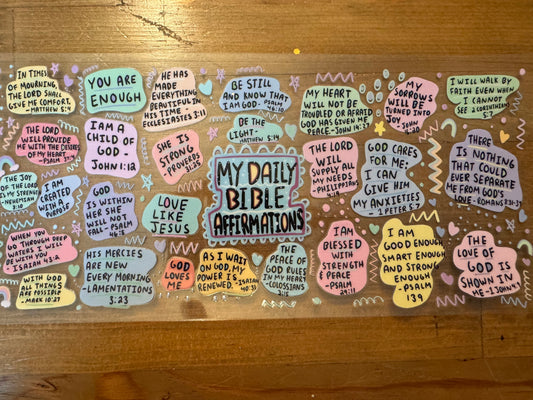 IN TIMES
OF MOURNING,
THE LORD SHALL
GIVE ME COMFORT.
-MATTHEW 5:4
YOU ARE
ENOUGH
HE HAS
MADE
EVERYTHING
BEAUTIFUL IN
HIS TIME -
ECCLESIASTES 3:11
BE STILL
AND KNOW THAT
I AM GOD - PSALM
46:10
MY HEART
WILL NOT BE
TROUBLED OR AFRAID
GOD HAS GIVEN ME
PEACE - JOHN 14:27
MY
SORROWS
WILL BE
TURNED INTO
JOY
I WILL WALK BY
FAITH EVEN WHEN
I CANNOT
SEE
THE LORD
WILL PROVIDE
ME WITH THE DESIRES
OF MY HEART
I AM A
CHILD OF
GOD -
JOHN 1:12
SHE IS
STRONG
PROVERBS
31:25
BE THE
LIGHT -
MATTHEW 5:14
THE LORD
WILL
SUPPLY ALL
MY NEEDS
- PHILIPPIANS
GOD CARES
FOR ME;
I CAN
GIVE HIM
MY ANXIETIES
- 1 PETER 5:7
THERE
IS NOTHING
THAT COULD
EVER SEPARATE
ME FROM GOD'S
LOVE - ROMANS
THE JOY
OF THE LORD IS
MY STRENGTH
I AM
CREATED
WITH A
PURPOSE
GOD IS
WITHIN
HER SHE
WILL NOT
FALL - PSALM
46:5
LOVE
LIKE
JESUS
MY DAILY
BIBLE
AFFIRMATIONS
WHEN YOU
GO THROUGH DEEP
WATERS I WILL
BE WITH YOU
ISAIAH 43:2
HIS MERCIES
ARE NEW
EVERY MORNING
- LAMENTATIONS
3:23
GOD
LOVES
ME
AS I WAIT
ON GOD, MY
POWER IS
RENEWED. - ISAIAH
40:31
THE
PEACE OF
GOD RULES
IN MY HEART
- COLOSSIANS
3:15
I AM
BLESSED
WITH
STRENGTH
& PEACE
- PSALM
29:11
I AM
GOOD ENOUGH
SMART ENOUGH
AND STRONG
ENOUGH
- PSALM
139
THE
LOVE OF
GOD IS
SHOWN IN
ME - 1 JOHN
WITH GOD
ALL THINGS
ARE POSSIBLE
- MARK 10:27